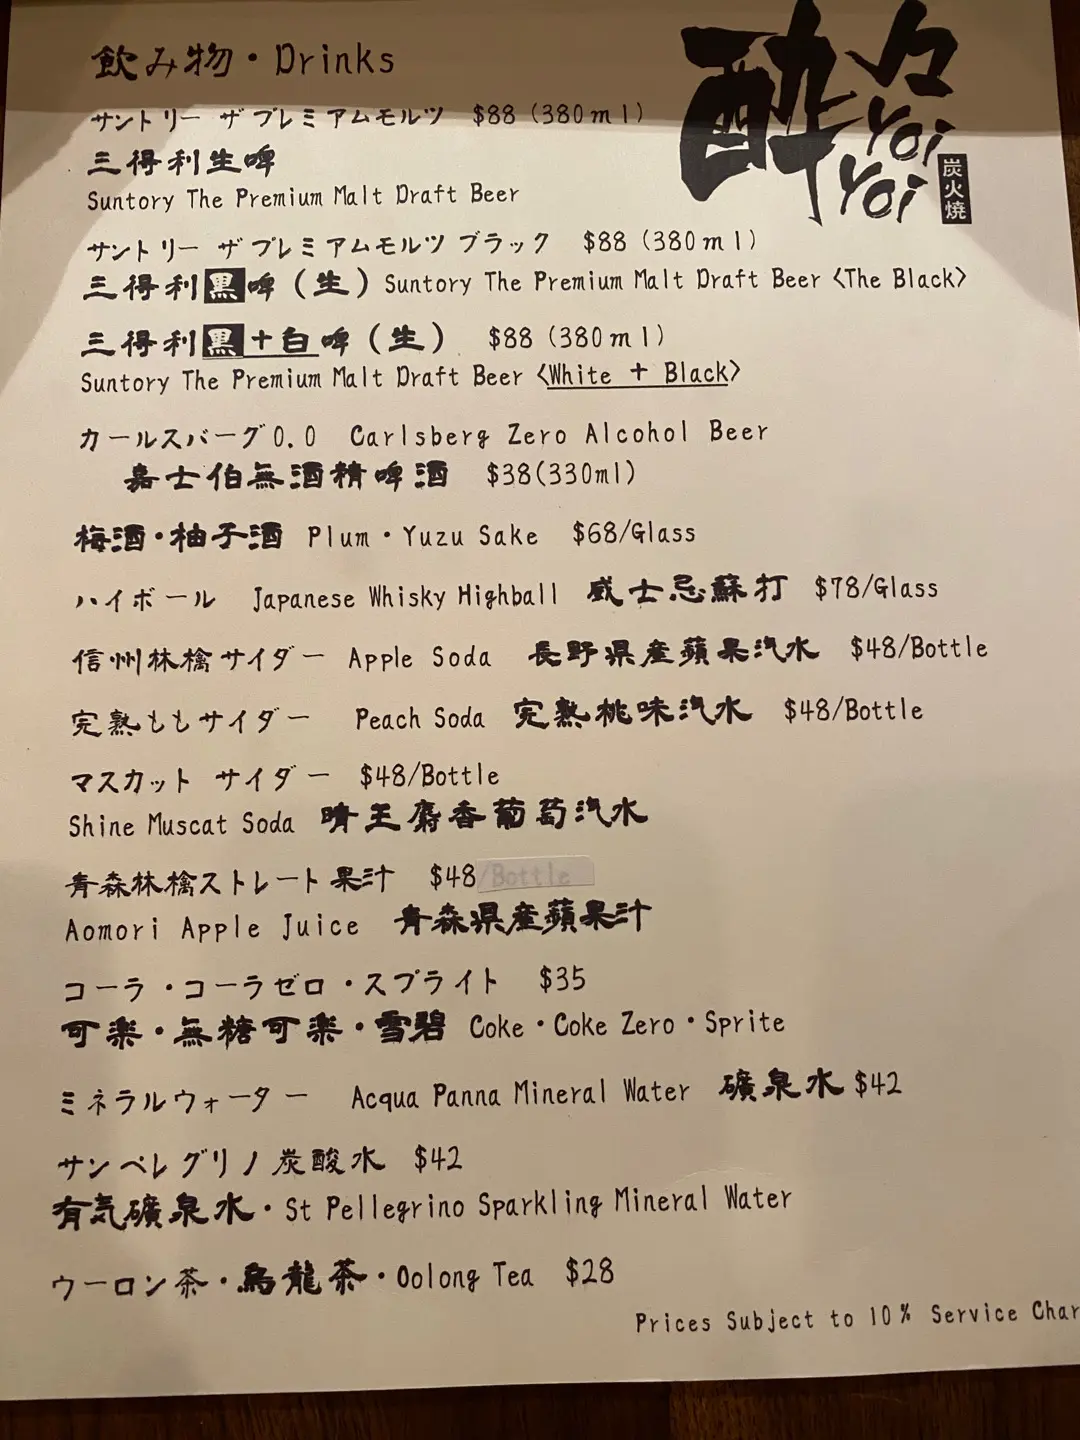 飲み物・Drinks
酔々
Yoi
Yoi
炭火焼
サントリー ザ プレミアムモルツ $88 (380ml)
三得利生啤
Suntory The Premium Malt Draft Beer
サントリー ザ プレミアムモルツ ブラック $88 (380ml)
三得利黒啤(生) Suntory The Premium Malt Draft Beer <The Black>
三得利黒+白啤(生) $88 (380ml)
Suntory The Premium Malt Draft Beer <White + Black>
カールスバーグ0.0 Carlsberg Zero Alcohol Beer
嘉士伯無酒精啤酒 $38(330ml)
梅酒・柚子酒 Plum・Yuzu Sake $68/Glass
ハイボール Japanese Whisky Highball 威士忌蘇打 $78/Glass
信州林檎サイダー Apple Soda 長野県産蘋果汽水 $48/Bottle
完熟ももサイダー Peach Soda 完熟桃味汽水 $48/Bottle
マスカット サイダー $48/Bottle
Shine Muscat Soda 晴王麝香葡萄汽水
青森林檎ストレート果汁 $48/Bottle
Aomori Apple Juice 青森県産蘋果汁
コーラ・コーラゼロ・スプライト $35
可楽・無糖可楽・雪碧 Coke・Coke Zero・Sprite
ミネラルウォーター Acqua Panna Mineral Water 礦泉水 $42
サンペレグリノ炭酸水 $42
有気礦泉水・St Pellegrino Sparkling Mineral Water
ウーロン茶・烏龍茶・Oolong Tea $28
Prices Subject to 10% Service Char